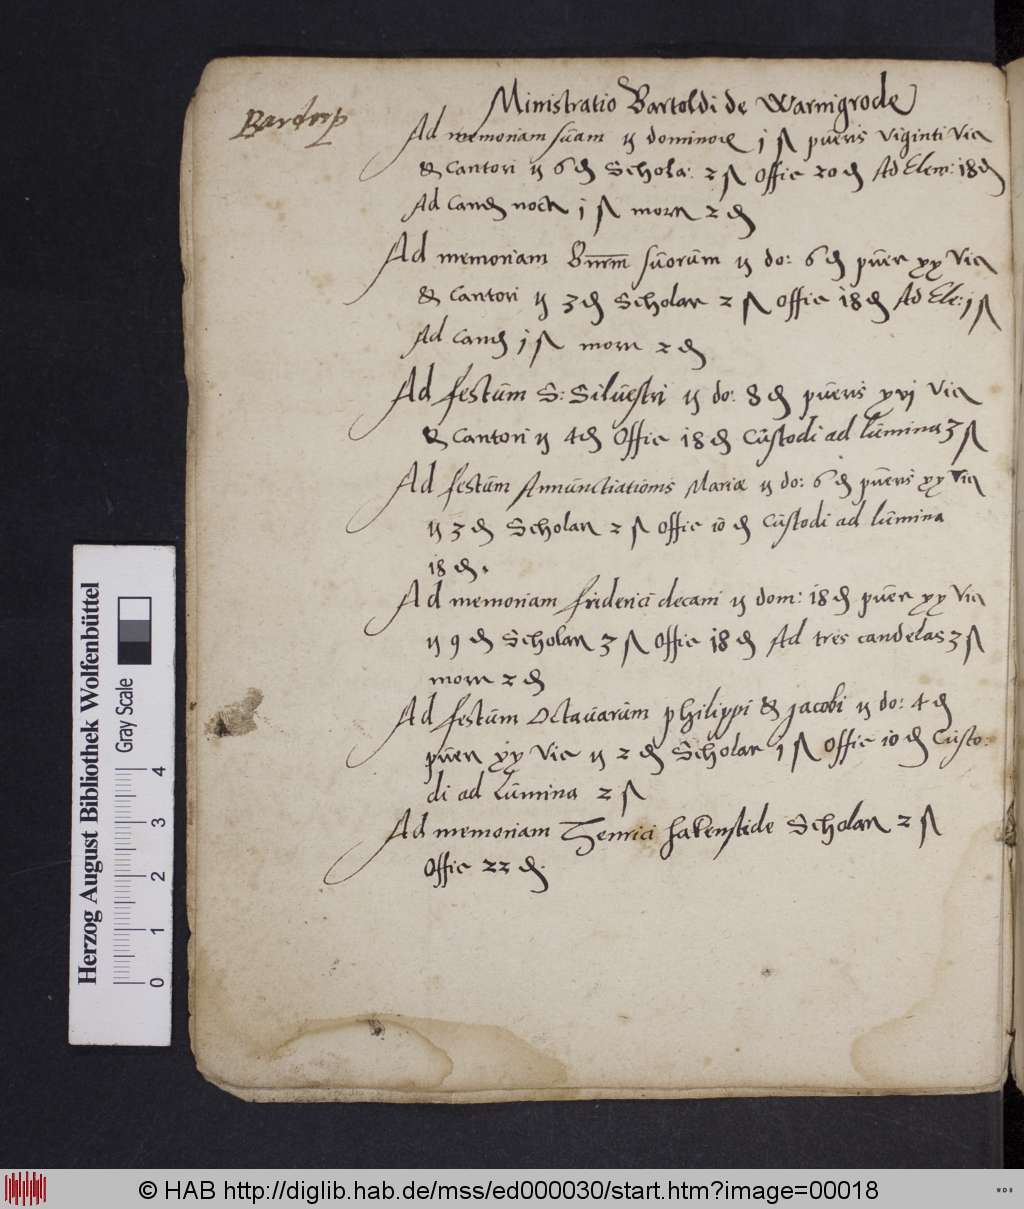 Bardorp
Ministratio Bartoldi de Warnigrode
Ad memoriam suam ij dominor j ß pueris viginti Vic
& Cantori ij 6 ₰ Schola: 2 ß Offic 20 ₰ Ad Elem: 18 ₰
Ad Cand noct j ß morn 2 ₰
Ad memoriam suorum ij do: 6 ₰ puer xx Vic
& Cantori ij 3 ₰ Scholar 2 ß Offic 18 ₰ Ad Ele: j ß
Ad Cand j ß morn 2 ₰
Ad festum S: Siluestri ij do: 8 ₰ pueris xvj Vic
& Cantori ij 4 ₰ Offic 18 ₰ Custodi ad lumina 3 ß
Ad festum Annunctiationis Mariæ ij do: 6 ₰ pueris xx Vic
ij 3 ₰ Scholar 2 ß Offic 10 ₰ Custodi ad lumina
18 ₰.
Ad memoriam friderici decani ij dom: 18 ₰ puer xx Vic
ij 9 ₰ Scholar 3 ß Offic 18 ₰ Ad tres candelas 3 ß
morn 2 ₰
Ad festum Octauarum philippi & jacobi ij do: 4 ₰
puer xx Vic ij 2 ₰ Scholar 1 ß Offic 10 ₰ Custo:
di ad Lumina 2 ß
Ad memoriam Henrici hakenstide Scholar 2 ß
Offic 22 ₰.
Herzog August Bibliothek Wolfenbüttel
Gray Scale
0 1 2 3 4
© HAB http://diglib.hab.de/mss/ed000030/start.htm?image=00018